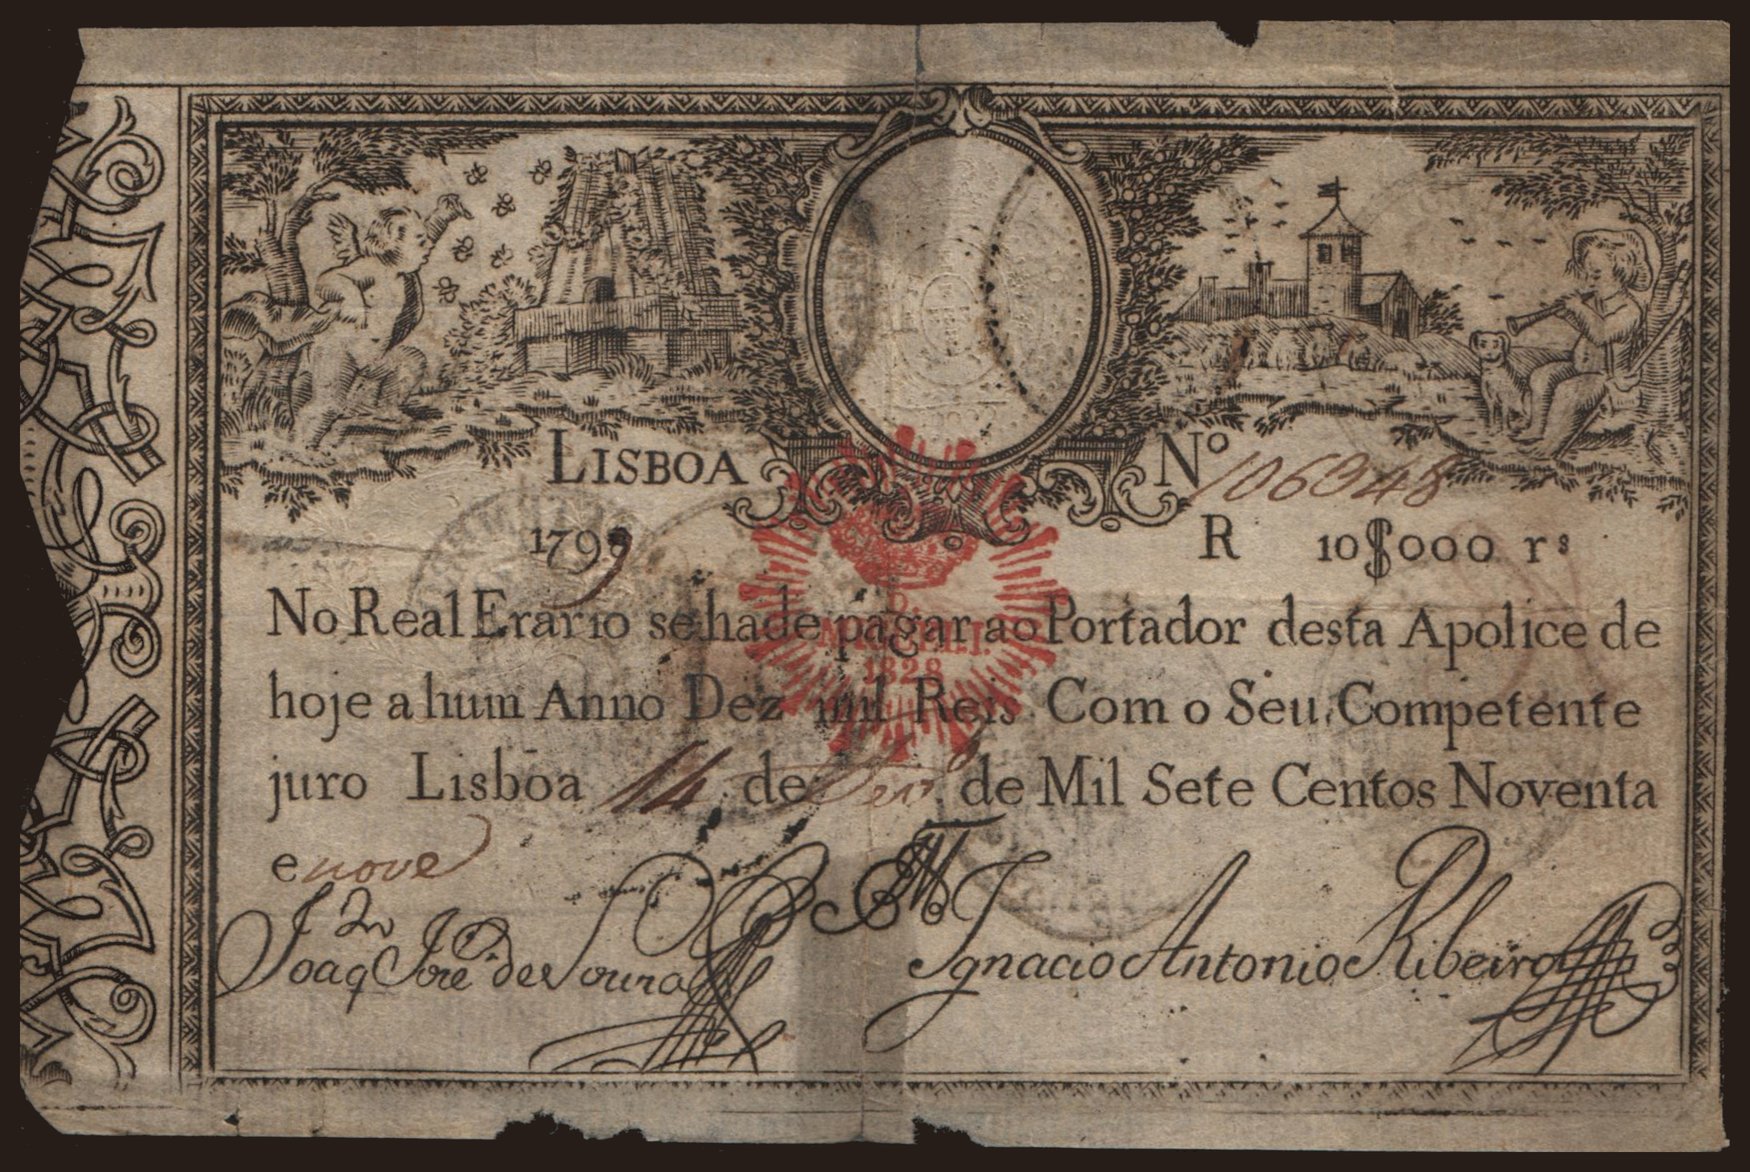 LISBOA Nº 106348
1799 R 10$000 rs
No Real Erario se hade pagar ao Portador desta Apolice de
hoje a hum Anno Dez mil Reis Com o Seu Competente
juro Lisboa 14 de de Mil Sete Centos Noventa
e nove
Joaq José de Souza Ignacio Antonio Ribeiro
1828